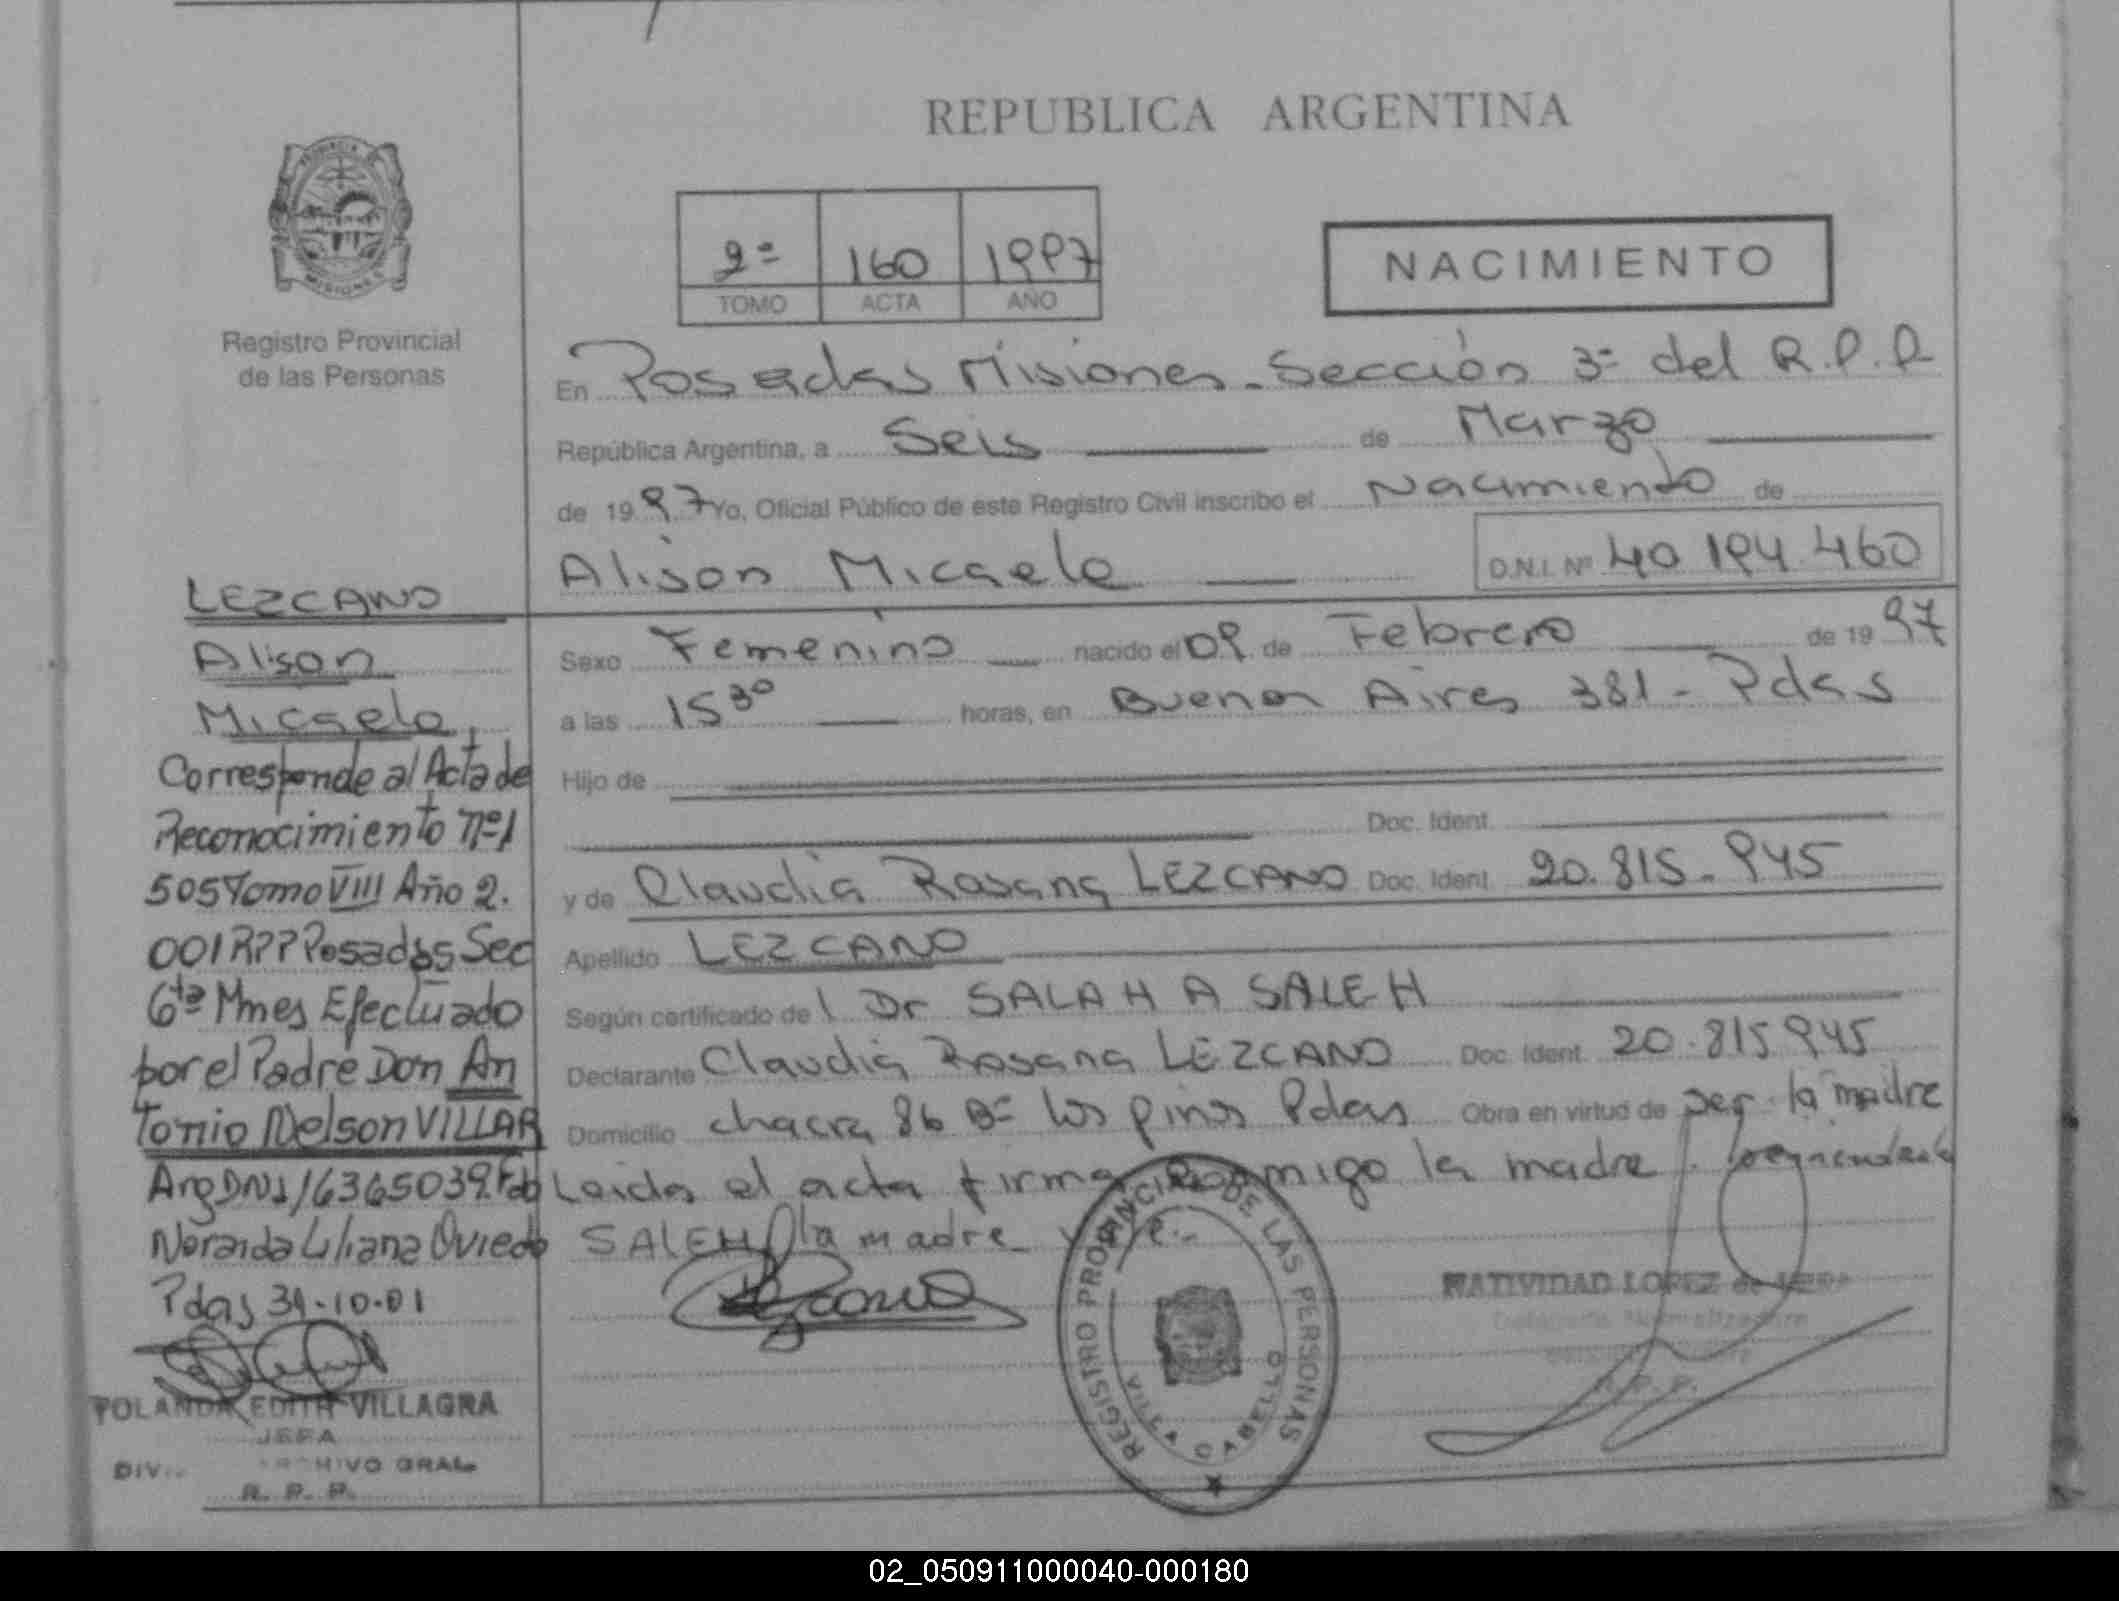 REPUBLICA ARGENTINA
PROVINCIA DE
MISIONES
Registro Provincial
de las Personas
2º 160 1997
TOMO ACTA AÑO
NACIMIENTO
En Posadas Misiones - Sección 3º del R.P.P
República Argentina, a Seis de Marzo
de 1997 Yo, Oficial Público de este Registro Civil inscribo el Nacimiento de
Alison Micaela D.N.I. Nº 40 194.460
Sexo Femenino nacido el 09 de Febrero de 1997
a las 15 30 horas, en Buenos Aires 381 - Pdas
Hijo de
Doc. Ident.
y de Claudia Rosana LEZCANO Doc. Ident. 20.815.945
Apellido LEZCANO
Según certificado del Dr SALAH A SALEH
Declarante Claudia Rosana LEZCANO Doc. Ident. 20.815945
Domicilio chacra 86 Bº los pinos Pdas Obra en virtud de ser la madre
Leida el acta firma conmigo la madre.
SALEH la madre
LEZCANO
Alison
Micaela
Corresponde al Acta de
Reconocimiento nº1
505 Tomo VIII Año 2.
001 RPP Posadas Sec
6ta Mnes Efectuado
por el Padre Don An
tonio Nelson VILLAR
Arg DNI 16365039. Fdo
Noraida Liliana Oviedo
Pdas 31-10-01
YOLANDA EDITH VILLAGRA
JEFA
ARCHIVO GRAL.
R. P. P.
REGISTRO PROVINCIAL DE LAS PERSONAS
VILLA CABELLO
NATIVIDAD LOPEZ de
R. P. P.
02_050911000040-000180